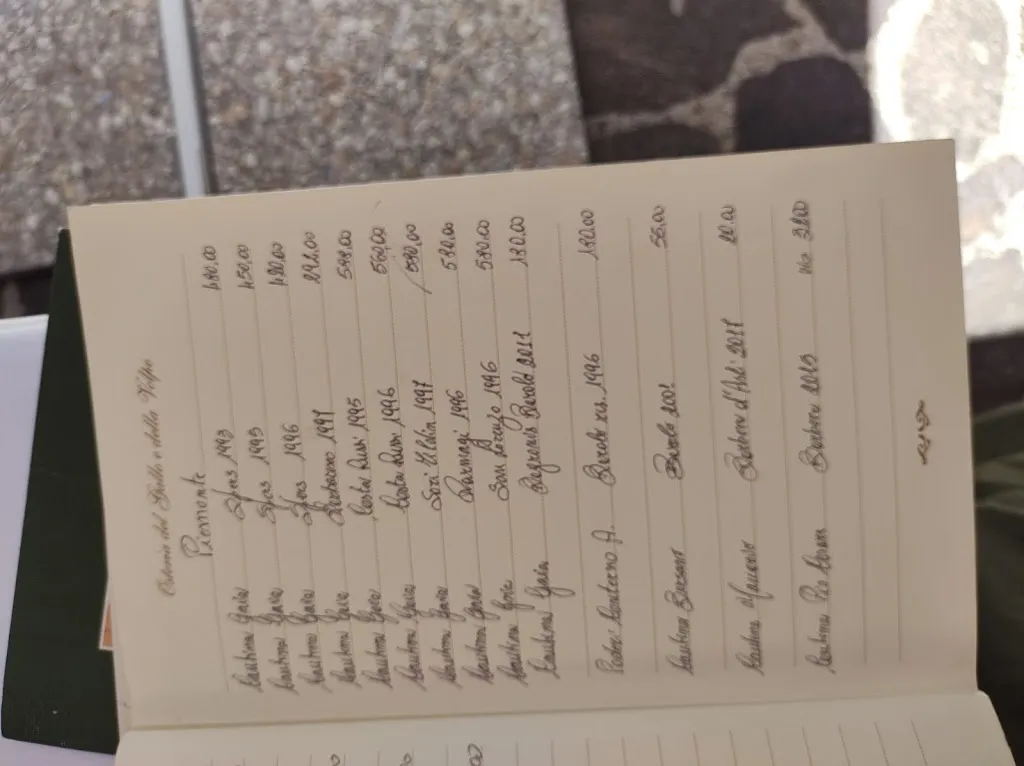 Osteria del Gallo e della Volpe
Piemonte
Cantina Gaia Sfors 1993 480.00
Cantina Gaia Sfors 1993 450.00
Cantina Gaia Sfors 1996 420.00
Cantina Gaia 1997 292.00
Cantina Gaia Costa Russi 1995 598.00
Cantina Gaia Costa Russi 1996 560.00
Cantina Gaia Sorì Tildin 1997 590.00
Cantina Gaia 1996 590.00
Cantina Gaia San Lorenzo 1996 580.00
Cantina Gaia Dagromis Barolo 2011 130.00
Poderi A. Barolo ris. 1996 180.00
Cantina Barolo 2001 55.00
Cantina Barbera d'Asti 2011 20.00
Cantina Pio Barbera 2013 32.00